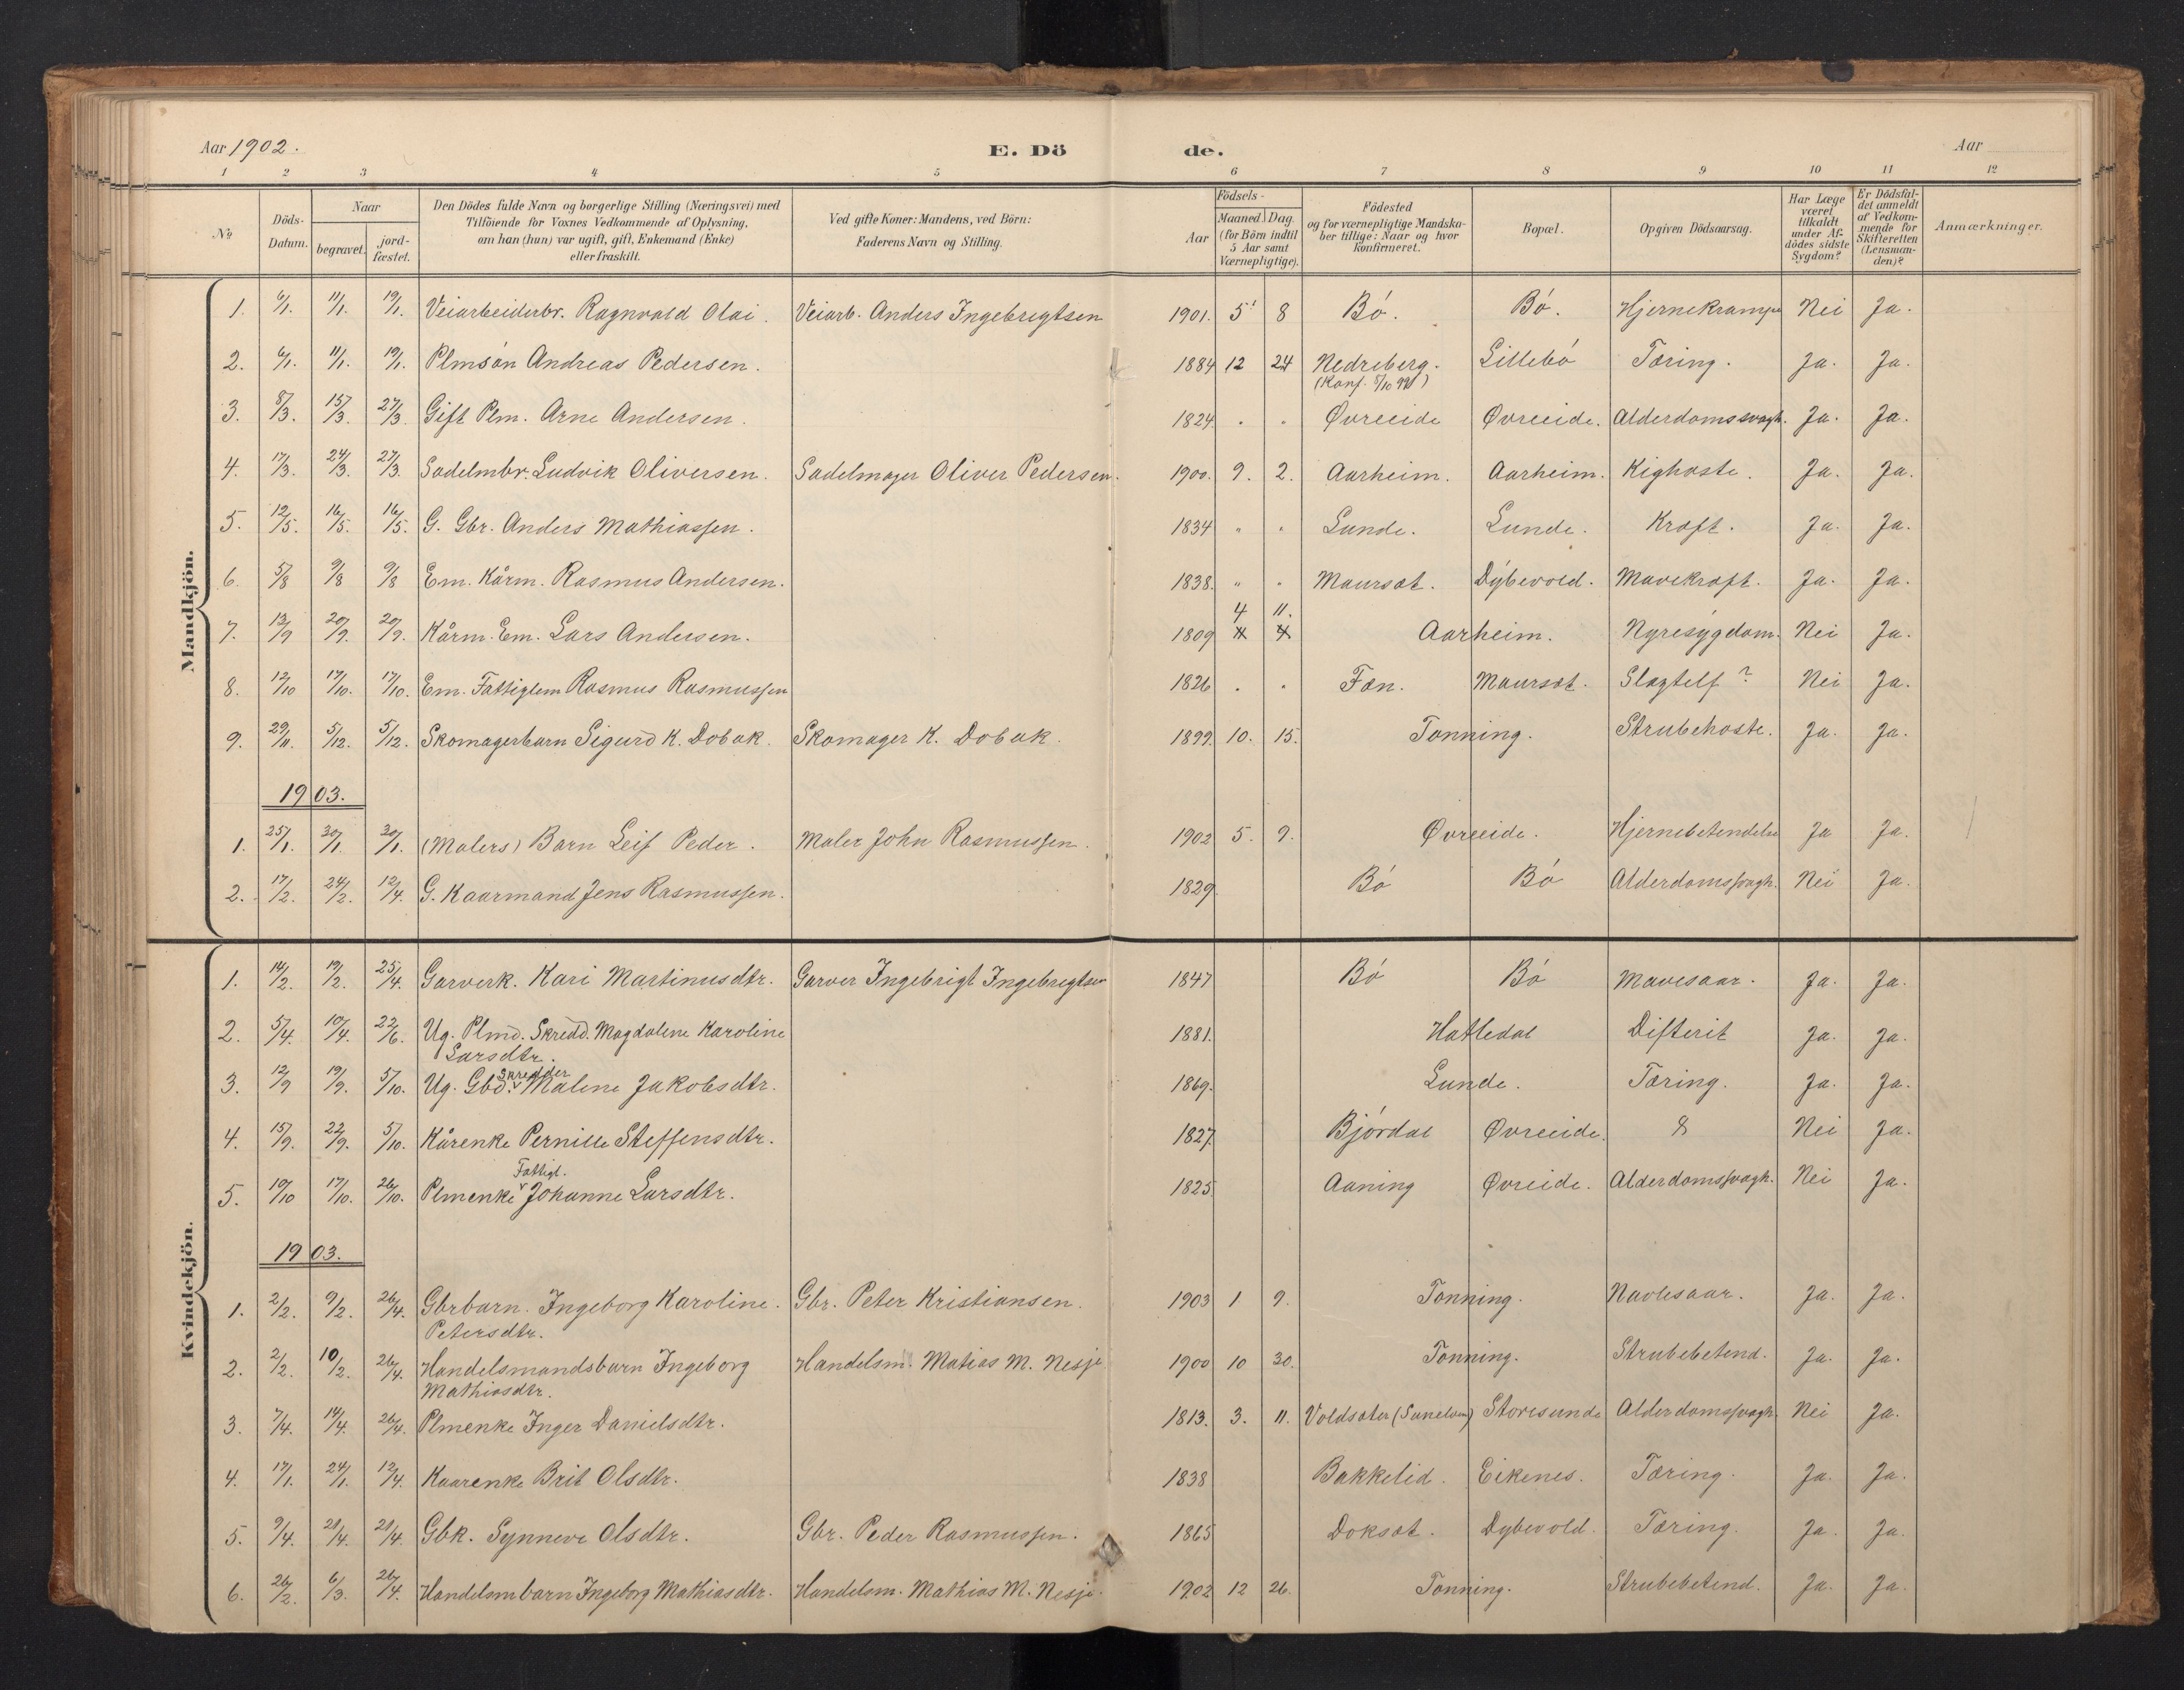 Aar 1902. E. Dö de. Aar
1 2 3 4 5 6 7 8 9 10 11 12
No Döds-Datum. Naar begravet. jord-fæstet. Den Dödes fulde Navn og borgerlige Stilling (Næringsvei) med Tilföiende for Voxnes Vedkommende af Oplysning, om han (hun) var ugift, gift, Enkemand (Enke) eller fraskilt. Ved gifte Koner: Mandens, ved Börn: Faderens Navn og Stilling. Födsels- Aar Maaned. Dag. (for Börn indtil 5 Aar samt Værnepligtige). Födested og for værnepligtige Mandska-ber tillige: Naar og hvor konfirmeret. Bopæl. Opgiven Dödsaarsag. Har Læge været tilkaldt under Af-dödes sidste Sygdom? Er Dödsfal-det anmeldt af Vedkom-mende for Skifteretten (Lensman-den)? Anmærkninger.
Mandkjön.
1. 6/1. 11/1. 19/1. Veiarbeiderbr. Ragnvald Olai. Veiarb. Anders Ingebrigtsen 1901. 5 8 Bó. Bó. Hjernekrampe Nei Ja.
2. 6/1. 11/1. 19/1. Plmsón Andreas Pedersen. 1884 12 24 Nedreberg. Lillebó Tæring. Ja. Ja.
3. 8/3. 15/3. 27/3. Gift Plm. Arne Andersen. 1824. " " Øvreeide Øvreeide. Alderdomssvagh. Ja. Ja.
4. 17/3. 24/3. 27/3. Sadelmbr. Ludvik Oliversen. Sadelmager Oliver Pedersen. 1900. 9. 2. Aarheim. Aarheim. Kighoste. Ja. Ja.
5. 12/5. 16/5. 16/5. G. Gbr. Anders Mathiassen. 1834 " " Lunde. Lunde. Kræft. Ja. Ja.
6. 5/8 9/8 9/8 Em. Kårm. Rasmus Andersen. 1838. " " Maursæt. Dýbevold. Mavekræft. Ja. Ja.
4 11.
7. 13/9 20/9. 20/9. Kårm. Em. Lars Andersen. 1809 Aarheim. Nyresýgdom. Nei Ja.
8. 12/10 17/10. 17/10. Em. Fattiglem Rasmus Rasmussen 1826 " " Fæn. Maursæt. Slagtelf? Nei Ja.
9. 29/11. 5/12. 5/12. Skomagerbarn Sigurd K. Dobak. Skomager K. Dobak. 1899. 10. 15. Tonning. Strubehoste. Ja. Ja.
1903.
1. 25/1. 30/1. 30/1. (Malers) Barn Leif Peder. Maler John Rasmussen. 1902 5. 9. Øvreeide. Hjernebetendelse Ja Ja.
2. 17/2. 24/2. 12/4. G. Kaarmand Jens Rasmussen. 1829. Bó Bó Alderdomssvagh. Nei Ja.
Kvindekjön.
1. 14/2. 19/2. 25/4. Garverk. Kari Martinusdtr. Garver Ingebrigt Ingebrigtsen 1847 Bó Bó Mavesaar. Ja. Ja.
2. 5/4. 10/4. 22/6. Ug. Plmd. Skredd. Magdalene Karoline 1881. Hattedal Difterit Ja. Ja.
Larsdtr.
Skredder
3. 12/9 19/9. 5/10. Ug. Gbd. Malene Jakobsdtr. 1869. Lunde. Tæring. Ja. Ja.
4. 15/9. 22/9. 5/10. Kårenke Pernille Steffensdtr. 1827. Bjórdal Øvreeide. Nei Ja.
Fattigl.
5. 10/10 17/10. 26/10. Plmenke Johanne Larsdtr. 1825 Aaning Øvreide. Alderdomssvagh. Nei Ja.
1903.
1. 2/2. 9/2. 26/4. Gbrbarn. Ingeborg Karoline. Gbr. Peter Kristiansen. 1903 1 9. Tonning. Navlesaar. Ja. Ja.
Petersdtr.
2. 2/2. 10/2. 26/4. Handelsmandsbarn Ingeborg Handelsm. Matias M. Nesje 1900 10 30. Tonning. Strubebetend. Ja. Ja.
Mathiasdtr.
3. 7/4. 14/4. 26/4. Plmenke Inger Danielsdtr. 1813. 3. 11. Voldsæter Storesunde Alderdomssvagh. Nei Ja.
4. 17/1. 24/1. 12/4. Kaarenke Brit Olsdtr. 1838 Bakkelid. Eikenes. Tæring. Ja. Ja.
5. 9/4. 21/4. 21/4. Gbk. Synneve Olsdtr. Gbr. Peder Rasmussen. 1865 Doksæt. Dybevold. Tæring. Ja. Ja.
6. 26/2. 6/3. 26/4. Handelsmbarn Ingeborg Mathiasdtr. Handelsm. Mathias M. Nesje. 1902 12 26. Tonning. Strubebetend. Ja. Ja.